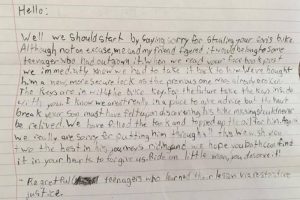 Hello:
Well we should start by saying sorry for stealing your son's bike.
Although not an excuse, me and my friend figured it would belong to some
teenager who had outgrown it. When we read your facebook post
we immediatly knew we had to take it back to him. We've bought
him a new, more secure lock as the previous one was already broken.
The keys are in with the bike. For the future take the keys inside
with you. I know we aren't really in a place to give advice but the heart
break your son must have felt upon discovering his bike missing shouldn't
be relived. We have filled the tank and topped up the oil for him
we really are sorry for putting him through this. We wish you
two the best in his journeys riding and we hope you both can find
it in your hearts to forgive us. Ride on little man, you deserve it!
- Regretful teenagers who learned their lesson via restorative
justice.